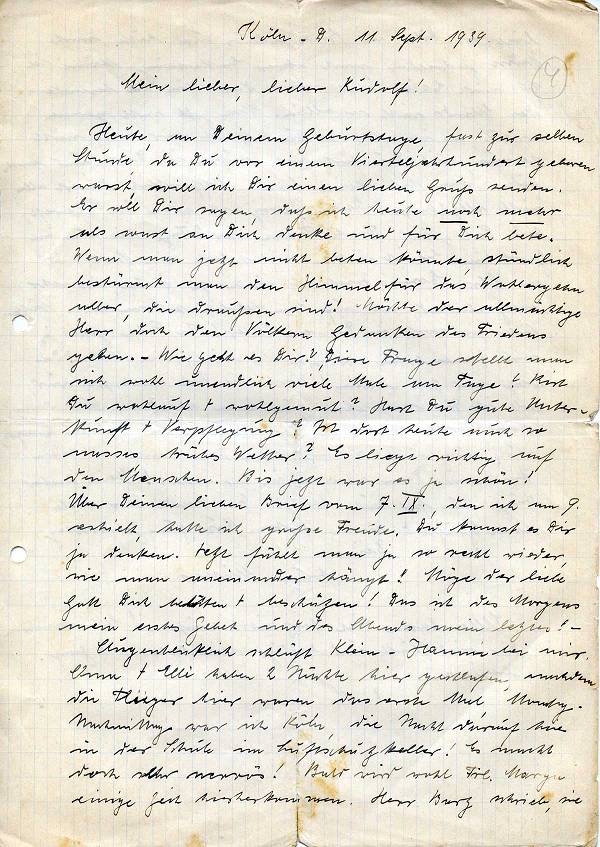 Köln - D. 11. Sept. 1939.
4
Mein lieber, lieber Rudolf!
Heute, an Deinem Geburtstage, fast zur selben
Stunde, da Du vor einem Vierteljahrhundert geboren
warst, will ich Dir einen lieben Gruß senden.
Er soll Dir sagen, daß ich heute noch mehr
als sonst an Dich denke und für Dich bete.
Wenn man jetzt nicht beten könnte, stündlich
bestürmt man den Himmel für das Wohlergehen
aller, die draußen sind! Möchte der allmächtige
Herr doch den Völkern Gedanken des Friedens
geben. - Wie geht es Dir? Diese Frage stellt man
sich wohl unendlich viele Male am Tage! Bist
Du wohlauf + wohlgemut? Hast Du gute Unter-
kunft + Verpflegung? Ist dort heute auch so
nasses trübes Wetter? Es liegt richtig auf
den Menschen. Bis jetzt war es ja schön!
Über Deinen lieben Brief vom 7. IX., den ich am 9.
erhielt, hatte ich große Freude. Du kannst es Dir
ja denken. Jetzt fühlt man ja so recht wieder,
wie man aneinander hängt! Möge der liebe
Gott Dich behüten + beschützen! Das ist des Morgens
mein erstes Gebet und des Abends mein letztes! -
Augenblicklich schläft Klein-Hanne bei mir.
Anna + Elli haben 2 Nächte hier geschlafen, nachdem
die Flieger hier waren das erste Mal. Montag-
Nachmittag war ich Köln, die Nacht darauf hier
in der Schule im Luftschutzkeller! Es macht
doch alles nervös! Bald wird wohl Frl.
einige Zeit hierherkommen. Herr schrieb, sie